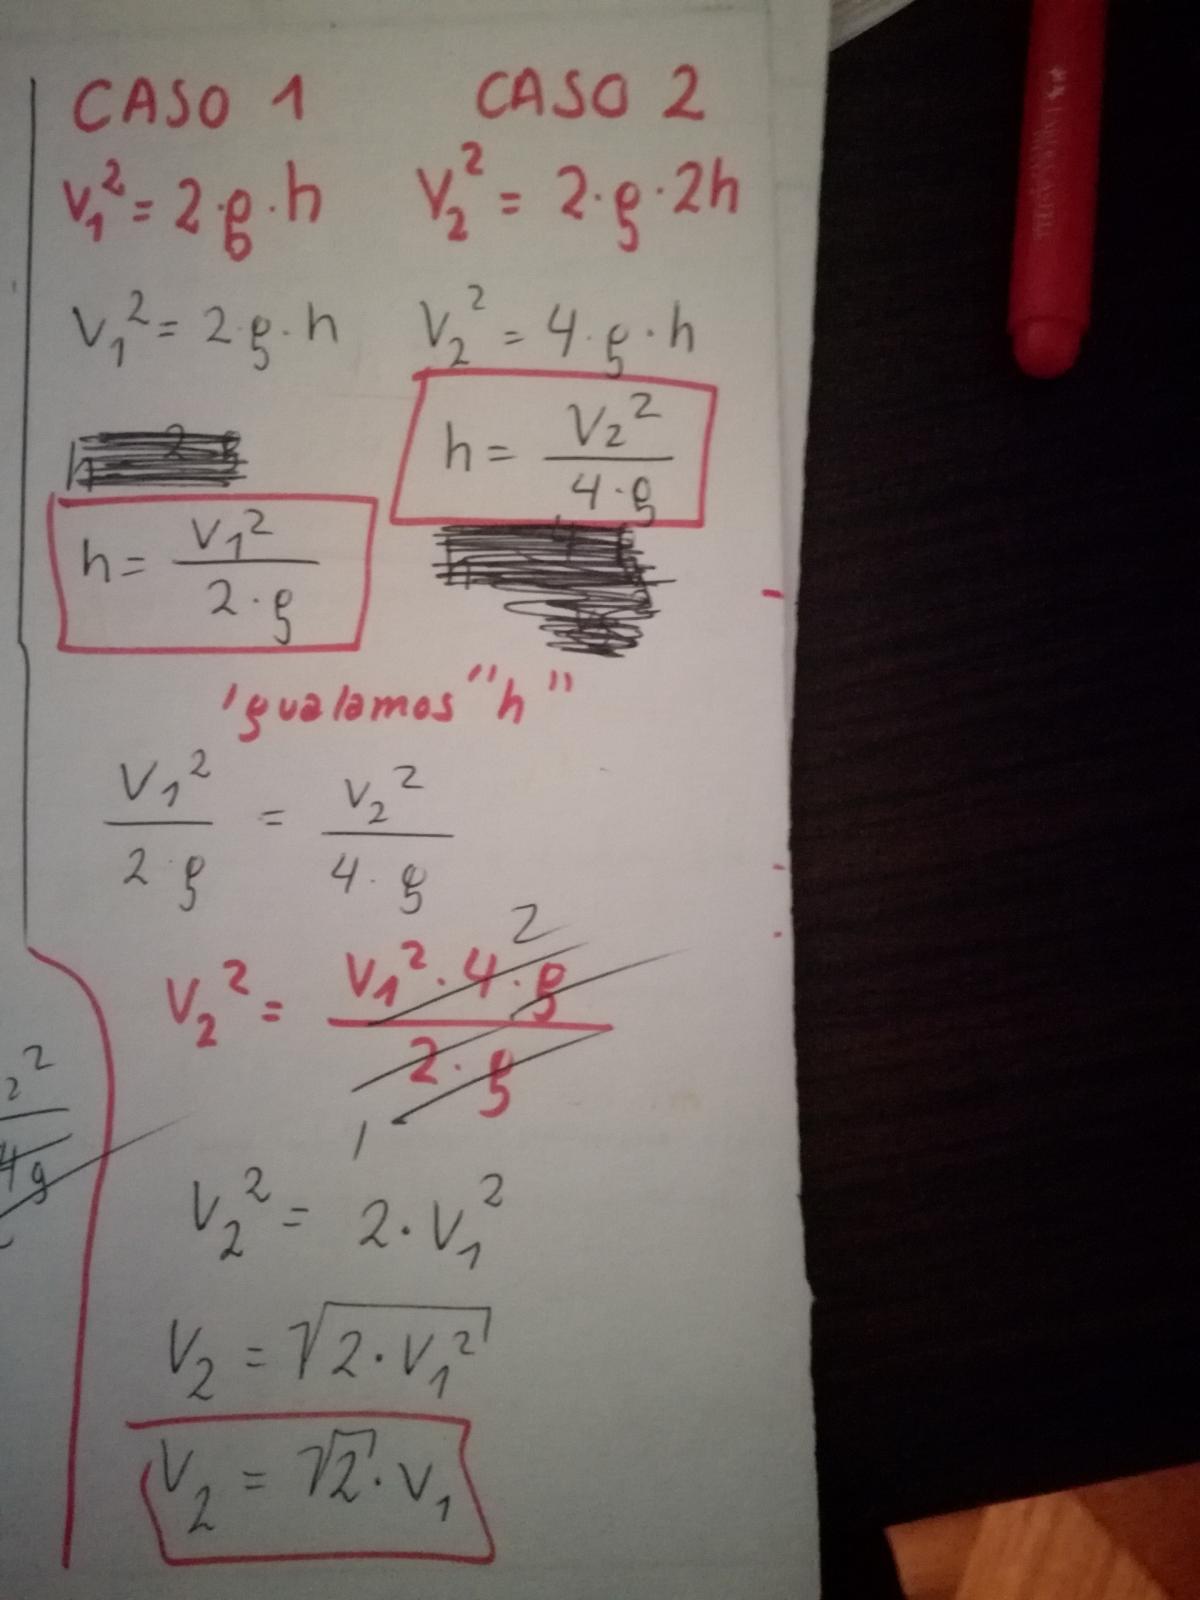 CASO 1 CASO 2
V₁² = 2·g·h V₂² = 2·g·2h
V₁² = 2·g·h V₂² = 4·g·h
h = V₂² / 4·g
h = V₁² / 2·g
Igualamos "h"
V₁² / 2·g = V₂² / 4·g
2
V₂² = V₁²·4·g / 2·g
1
V₂² = 2·V₁²
V₂ = √2·V₁²
V₂ = √2·V₁